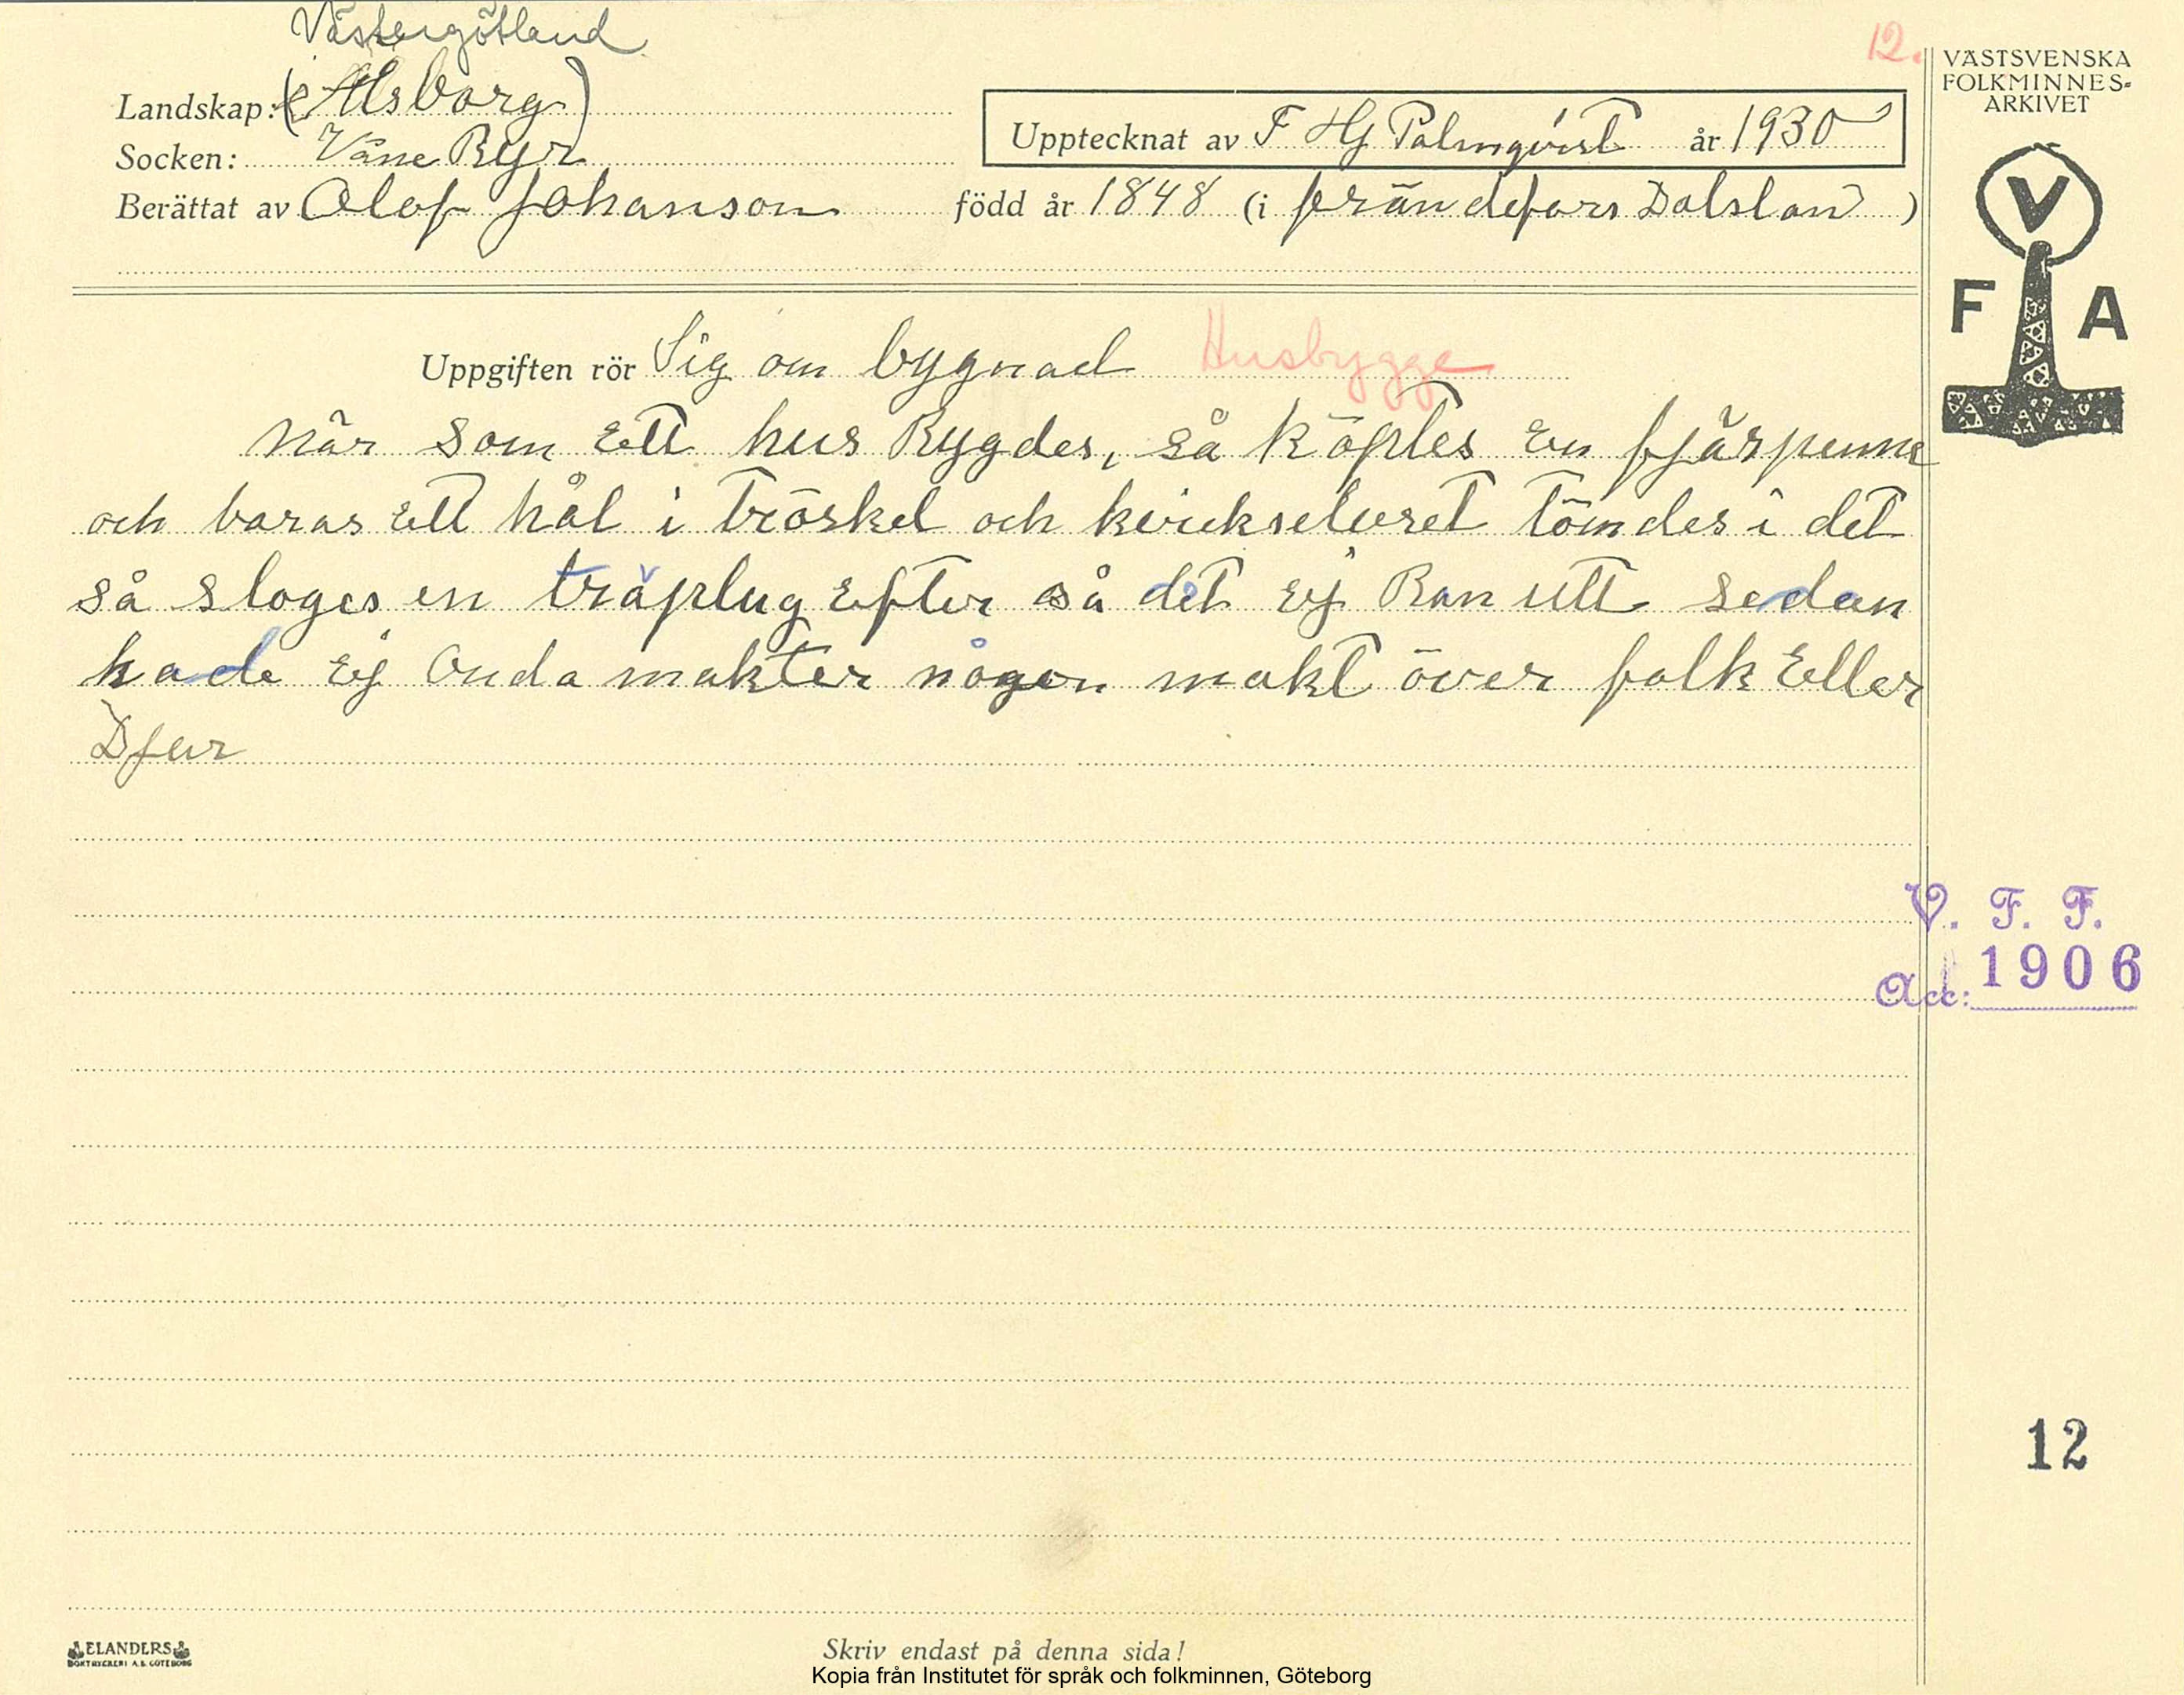 Västergötland
12.
VÄSTSVENSKA
FOLKMINNES-
ARKIVET
Landskap: (Elsborg)
Upptecknat av F Hj Palmqvist år 1930
Socken: Väne Ryr
Berättat av Olof Johanson född år 1848 (i frändefors Dalslan )
V
F A
Uppgiften rör Sig om bygnad Husbygge
när som Ett hus Bygdes, så köptes En fjärpenne
och boras Ett hål i Tröskel och kvickselvret Tömdes i det
så sloges en träplug Efter så det Ej Ran utt sedan
hade Ej Onda makter någon makt över folk Eller
Djur
V. F. F.
Acc: 1906
12
ELANDERS
BOKTRYCKERI A.B. GÖTEBORG
Skriv endast på denna sida!
Kopia från Institutet för språk och folkminnen, Göteborg